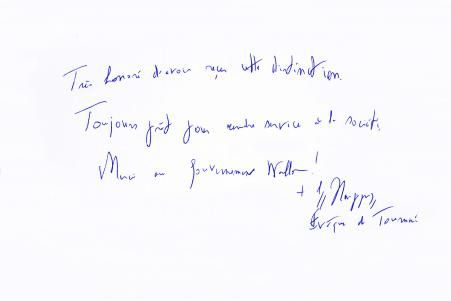 Très honoré d'avoir reçu cette distinction.
Toujours prêt pour rendre service à la société,
Merci au Gouvernement Wallon!
+ Harpigny
Évêque de Tournai